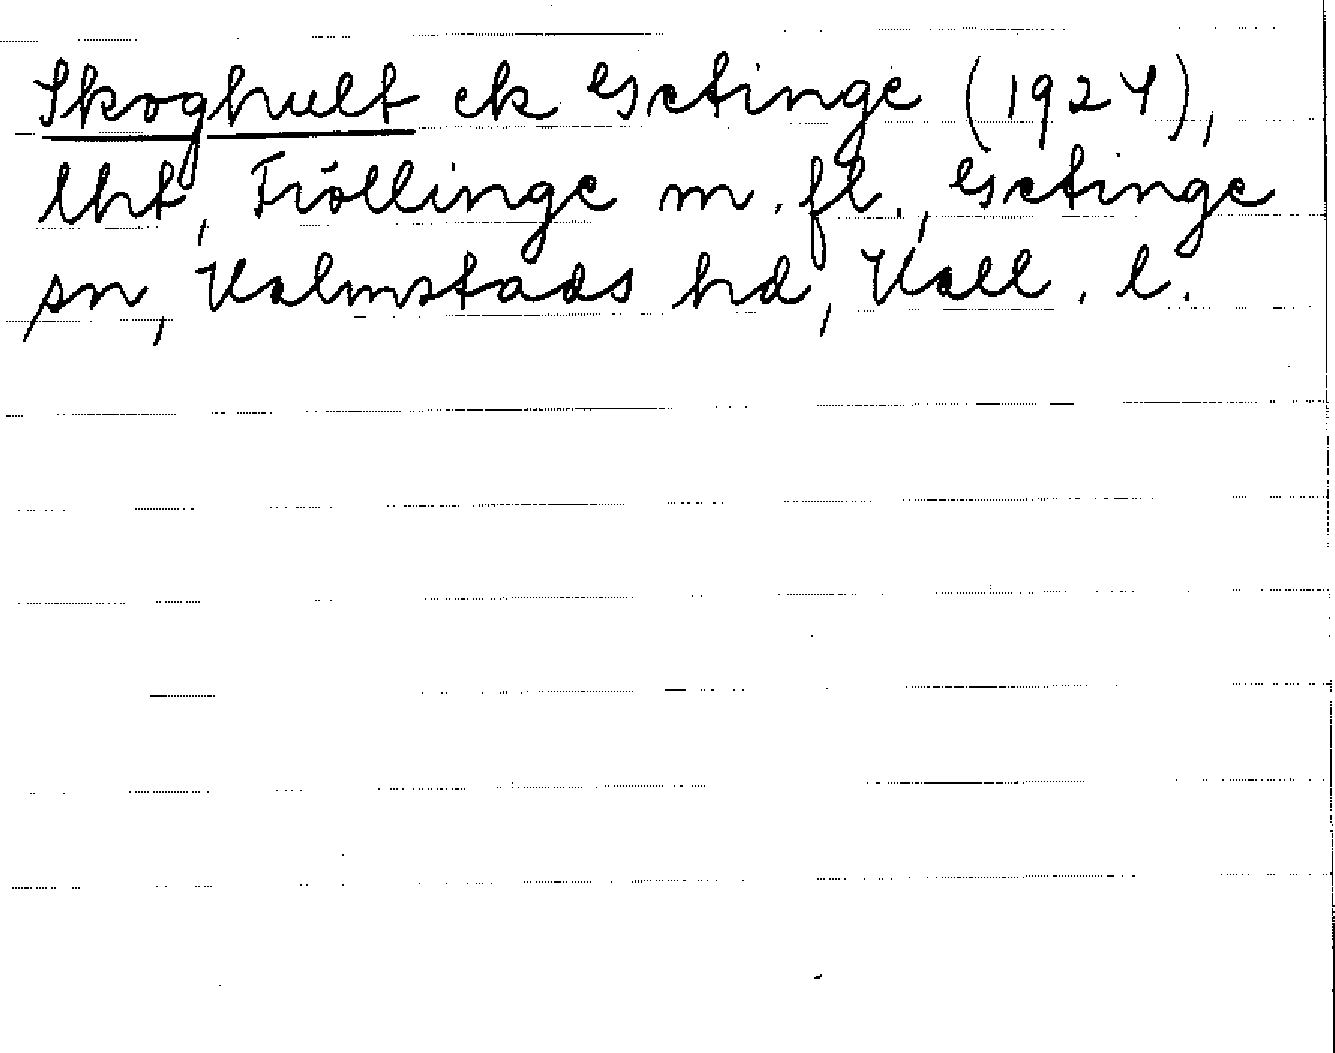 Skoghult ek Getinge (1924),
lht, Fröllinge m. fl., Getinge
sn, Halmstads hd, Hall. l.